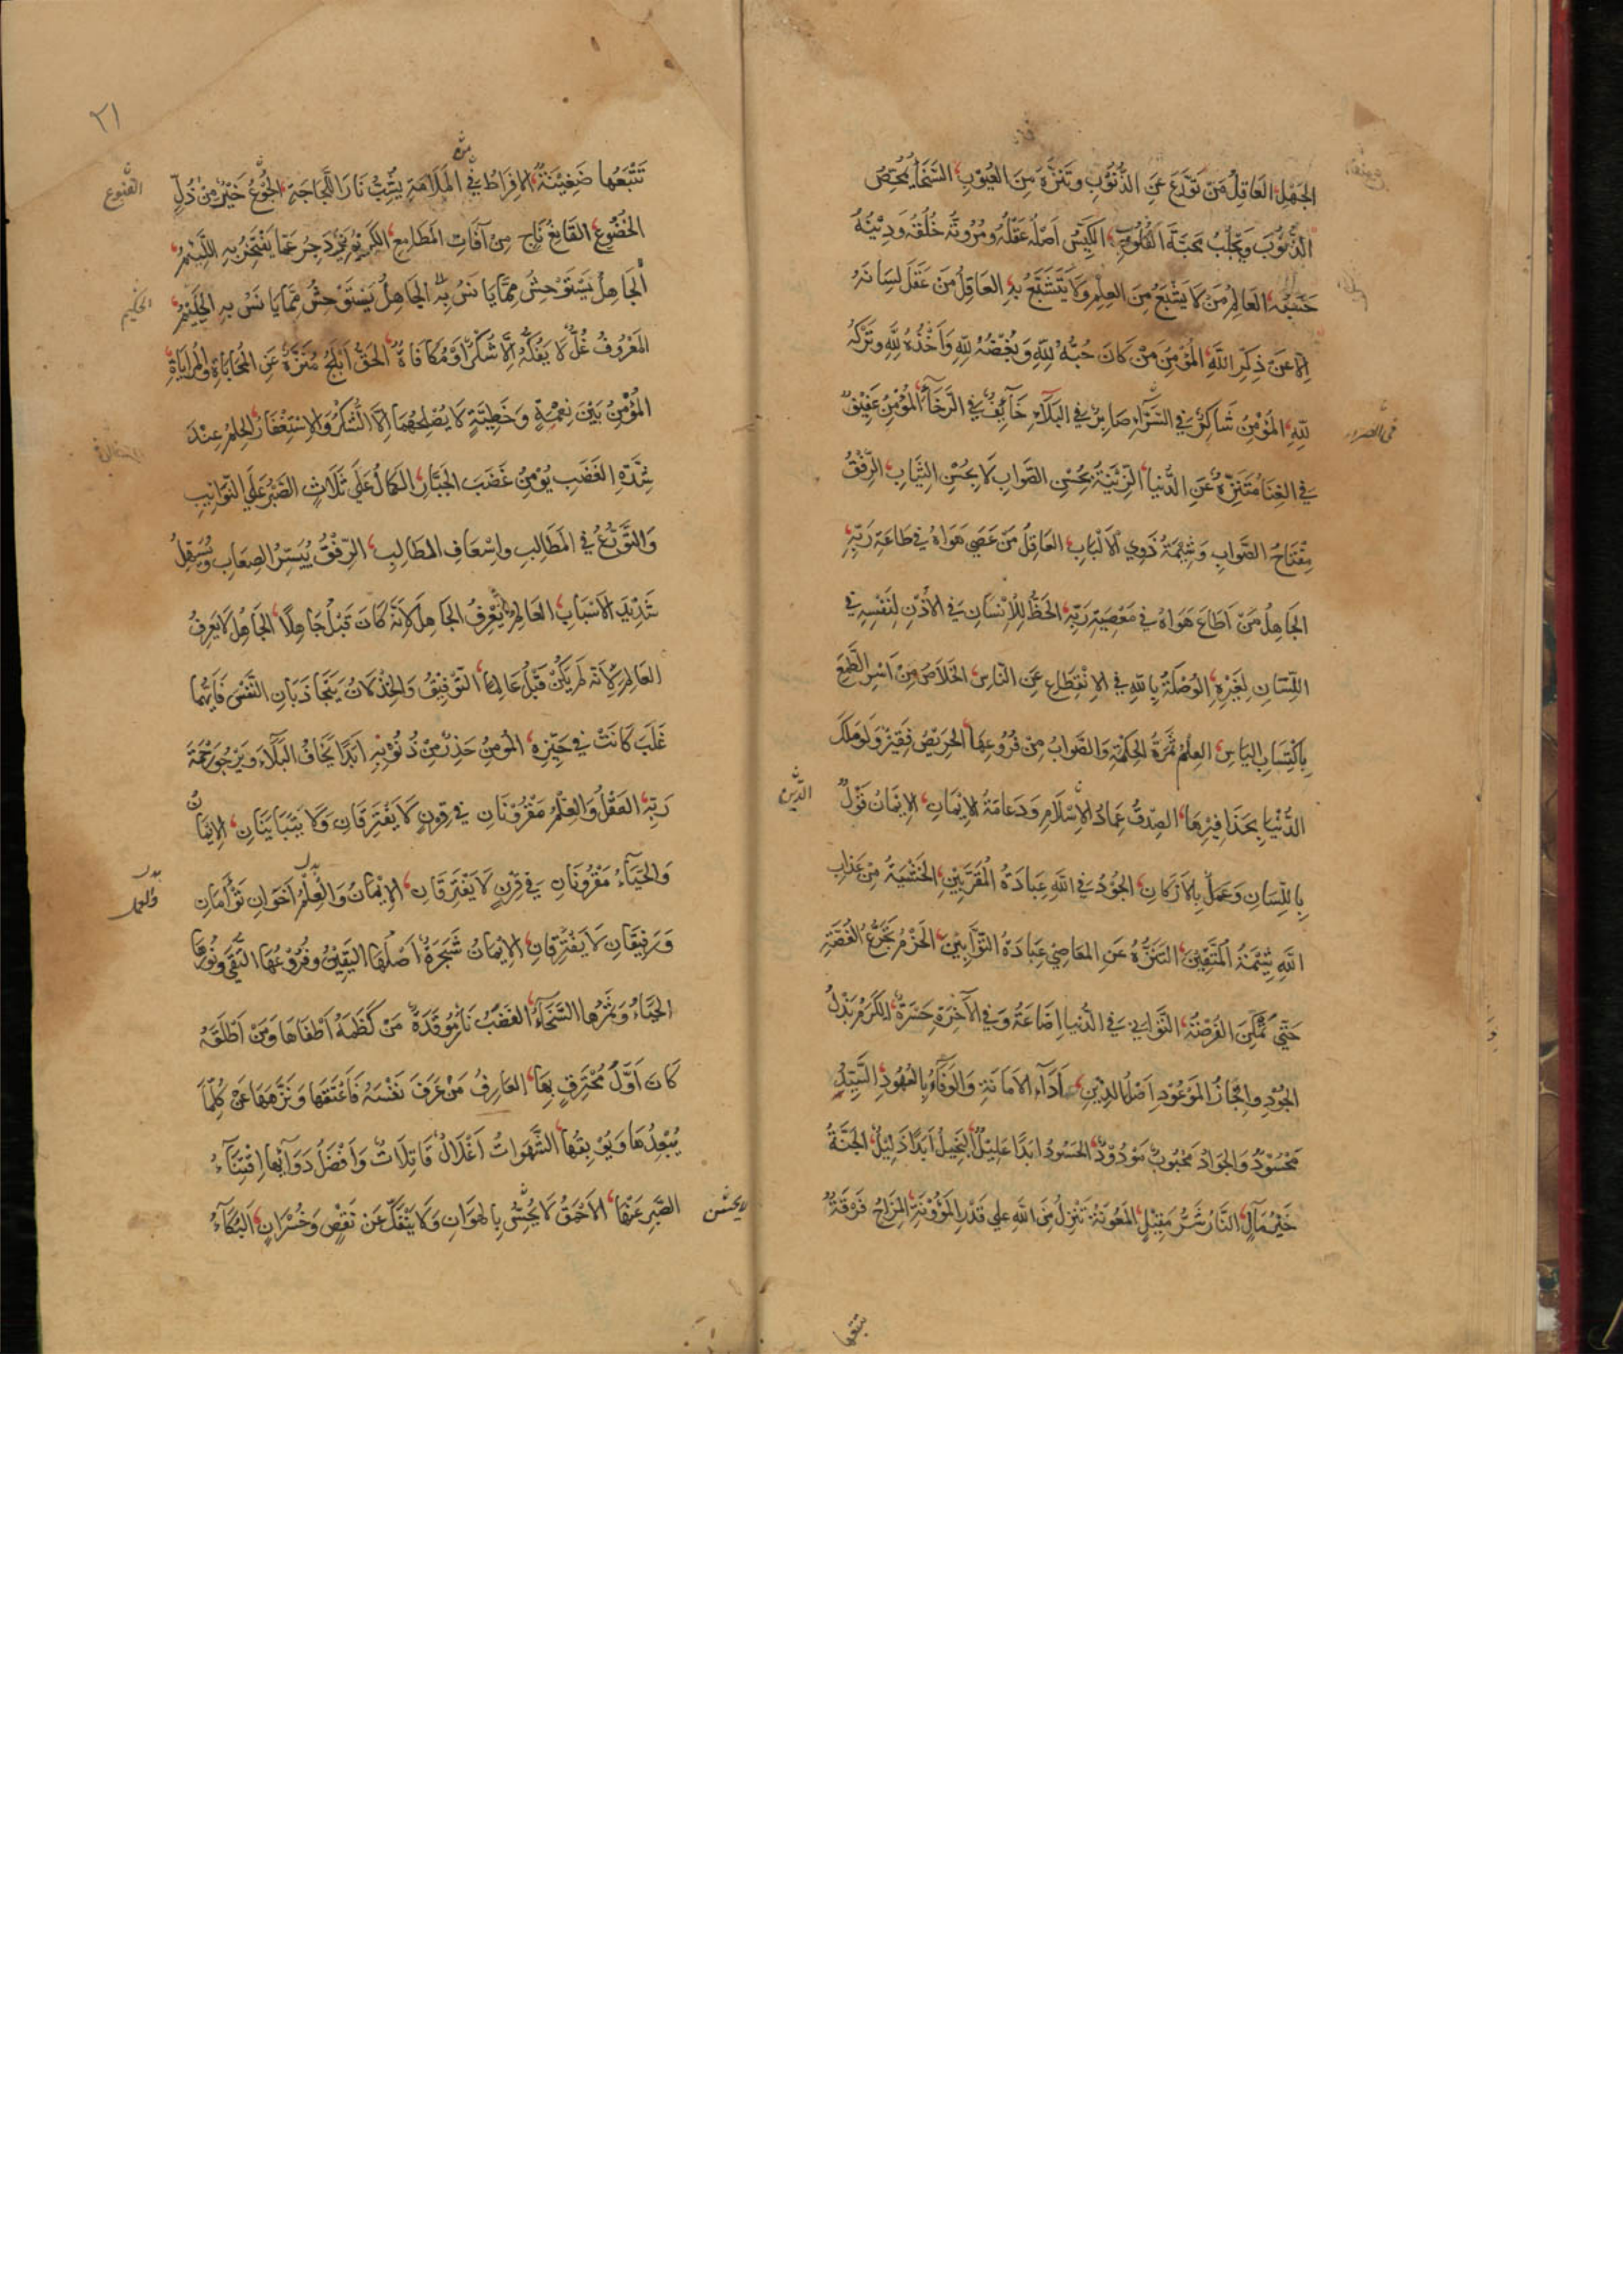 الجَهْلِ العَاقِلُ مَنْ تَوَرَّعَ عَنِ الذُّنُوبِ وَتَنَزَّهَ مِنَ العُيُوبِ السَّخَاءُ يُمَحِّصُ
الذُّنُوبَ وَيَجْلِبُ مَحَبَّةَ القُلُوبِ الكَيِّسُ اَصْلُهُ عَقْلُهُ وَمُرُوَّتُهُ خُلُقُهُ وَدِيْنُهُ
حَسَبُهُ العَالِمُ مَنْ لَا يَشْبَعُ مِنَ العِلْمِ وَلَا يَتَشَبَّعُ بِهِ العَاقِلُ مَنْ عَقَلَ لِسَانَهُ
اِلَّا عَنْ ذِكْرِ اللهِ المُؤْمِنُ مَنْ كَانَ حُبُّهُ لِلّهِ وَبُغْضُهُ لِلّهِ وَاَخْذُهُ لِلّهِ وَتَرْكُهُ
لِلّهِ المُؤْمِنُ شَاكِرٌ فِي السَّرَّاءِ صَابِرٌ فِي البَلَآءِ خَآئِفٌ فِي الرَّخَآءِ المُؤْمِنُ عَفِيْفٌ
فِي الغِنَا مُتَنَزِّهٌ عَنِ الدُّنْيَا الزِّيْنَةُ بِحُسْنِ الصَّوَابِ لَا بِحُسْنِ الثِّيَابِ الرِّفْقُ
مِفْتَاحُ الصَّوَابِ وَشِيْمَةُ ذَوِي الْاَلْبَابِ العَاقِلُ مَنْ عَصَى هَوَاهُ فِي طَاعَةِ رَبِّهِ
الجَاهِلُ مَنْ اَطَاعَ هَوَاهُ فِي مَعْصِيَةِ رَبِّهِ الحَظُّ لِلْاِنْسَانِ فِي الْاُذُنِ لِنَفْسِهِ وَفِي
اللِّسَانِ لِغَيْرِهِ الوُصْلَةُ بِاللهِ فِي الْاِنْقِطَاعِ عَنِ النَّاسِ الخَلَاصُ مِنْ اَسْرِ الطَّمَعِ
بِاكْتِسَابِ اليَاْسِ العِلْمُ ثَمَرَةُ الحِكْمَةِ وَالصَّوَابُ مِنْ فُرُوعِهَا الحَرِيْصُ فَقِيْرٌ وَلَوْ مَلَكَ
الدُّنْيَا بِحَذَافِيْرِهَا الصِّدْقُ عِمَادُ الْاِسْلَامِ وَدَعَامَةُ الْاِيْمَانِ الْاِيْمَانُ قَوْلٌ
الدِّيْن
بِاللِّسَانِ وَعَمَلٌ بِالْاَرْكَانِ الجُوْدُ فِي اللهِ عِبَادَةُ المُقَرَّبِيْنَ الخَشْيَةُ مِنْ عَذَابِ
اللهِ شِيْمَةُ المُتَّقِيْنَ التَّنَزُّهُ عَنِ المَعَاصِي عِبَادَةُ التَّوَّابِيْنَ الحَزْمُ تَجَرُّعُ الغُصَّةِ
حَتّى تُمْكِنَ الفُرْصَةُ التَّوَانِي فِي الدُّنْيَا اِضَاعَةٌ وَفِي الْآخِرَةِ حَسْرَةٌ الكَرَمُ بَذْلُ
الجُوْدِ وَاِنْجَازُ المَوْعُوْدِ اَصْلُ الدِّيْنِ اَدَآءُ الْاَمَانَةِ وَالوَفَآءُ بِالعُهُودِ السَّيِّدُ
مَحْسُوْدٌ وَالجَوَادُ مَحْبُوبٌ مَوْدُوْدٌ الحَسُودُ اَبَدًا عَلِيْلٌ البَخِيلُ اَبَدًا ذَلِيْلٌ الجَنَّةُ
خَيْرُ مَآلٍ النَّارُ شَرُّ مَقِيْلٍ المَعُونَةُ تَنْزِلُ مِنَ اللهِ عَلى قَدْرِ المَؤُوْنَةِ المِزَاحُ فَرْقَةٌ
تتبعها
٢١
تَتْبَعُهَا ضَغِيْنَةٌ الْاِفْرَاطُ فِي المَلَامَةِ يَشُبُّ نَارَ اللَّجَاجَةِ الجُوْعُ خَيْرٌ مِنْ ذُلِّ
القنوع
الخُضُوْعِ القَانِعُ نَاجٍ مِنْ آفَاتِ المَطَامِعِ الكَرِيْمُ يَزْدَجِرُ عَمَّا يَفْتَخِرُ بِهِ اللَّئِيْمُ
الجَاهِلُ يَسْتَوْحِشُ مِمَّا يَانَسُ بِهِ الجَاهِلُ يَسْتَوْحِشُ مِمَّا يَانَسُ بِهِ الحَلِيْمُ
الحكيم
المَعْرُوفُ غُلٌّ لَا يَفُكُّهُ اِلَّا شُكْرٌ اَوْ مُكَافَاةٌ الحَقُّ اَبْلَجُ مُنَزَّهٌ عَنِ المُحَابَاةِ وَالمُرَايَاةِ
المُؤْمِنُ بَيْنَ نِعْمَةٍ وَخَطِيْئَةٍ لَا يُصْلِحُهُمَا اِلَّا الشُّكْرُ وَالْاِسْتِغْفَارُ الحِلْمُ عِنْدَ
شِدَّةِ الغَضَبِ يُؤْمِنُ غَضَبَ الجَبَّارِ الكَمَالُ عَلى ثَلَاثٍ الصَّبْرُ عَلَى النَّوَائِبِ
وَالتَّوَرُّعُ فِي المَطَالِبِ وَاِسْعَافِ الطَالِبِ الرِّفْقُ يُيَسِّرُ الصِعَابِ وَيُسَهِّلُ
شَدِيْدَ الْاَسْبَابِ العَالِمُ يَعْرِفُ الجَاهِلَ لِاَنَّهُ كَانَ قَبْلُ جَاهِلًا الجَاهِلُ لَا يَعْرِفُ
العَالِمَ لِاَنَّهُ لَمْ يَكُنْ قَبْلُ عَالِمًا التَّوْفِيْقُ وَالخِذْلَانُ يَتَجَاذَبَانِ النَّفْسَ فَاَيُّهُمَا
غَلَبَ كَانَتْ فِي حَيِّزِهِ المُؤمِنُ حَذِرٌ مِنْ ذُنُوْبِهِ اَبَدًا يَخَافُ البَلَآءَ وَيَرْجُو رَحْمَةَ
رَبِّهِ العَقْلُ وَالعِلْمُ مَقْرُوْنَانِ فِي قَرَنٍ لَا يَفْتَرِقَانِ وَلَا يَتَبَايَنَانِ الْاِيْمَانُ
وَالحَيَآءُ مَقْرُوْنَانِ فِي قَرَنٍ لَا يَفْتَرِقَانِ الْاِيْمَانُ وَالعِلْمُ اَخَوَانِ تَوْأَمَانِ
وَرَفِيْقَانِ لَا يَفْتَرِقَانِ الْاِيْمَانُ شَجَرَةٌ اَصْلُهَا اليَقِيْنُ وَفُرُوْعُهَا التُّقى وَنُوْرُهَا
الحَيَاءُ وَثَمَرُهَا السَّخَآءُ الغَضَبُ نَارٌ مُوْقَدَةٌ مَنْ كَظَمَهُ اَطْفَاهَا وَمَنْ اَطْلَقَهُ
كَانَ اَوَّلَ مُحْتَرِقٍ بِهَا العَارِفُ مَنْ عَرَفَ نَفْسَهُ فَاَعْتَقَهَا وَنَزَّهَهَا عَنْ كُلِّمَا
يُبْعِدُهَا وَيُوْبِقُهَا الشَّهَوَاتُ اَغْلَالٌ قَاتِلَاتٌ وَاَفْضَلُ دَوَآئِهَا اِقْتِنَآءُ
الصَّبْرِ عَنْهَا الْاَحْمَقُ لَا يُحِسُّ بِالهَوَانِ وَلَا يَنْفَكُّ عَنْ نَقْصٍ وَخُسْرَانٍ البُكَآءُ
لا يحسن